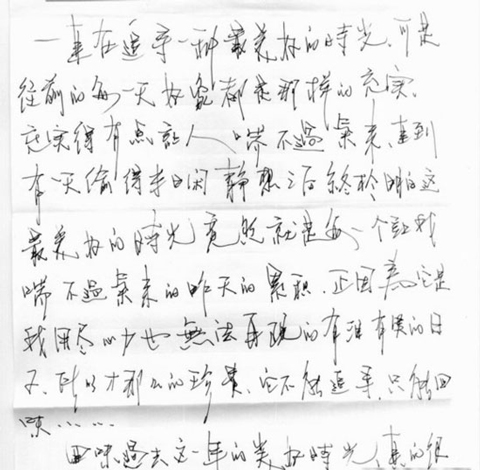 一直在追寻一种最美好的時光,可是
從前的每一天好像都是那樣的充实.
充实得有点讓人喘不過氣來,直到
有一天偷得半日闲静想之后終於明白这
最美好的時光竟然就是每一个让我
喘不過氣來的昨天的累积.正因為它是
我用尽心力也無法再現的有泪有笑的日
子,所以才那么的珍貴.它不能追寻,只能回
味……
回味過去这一年的美好時光,真的很